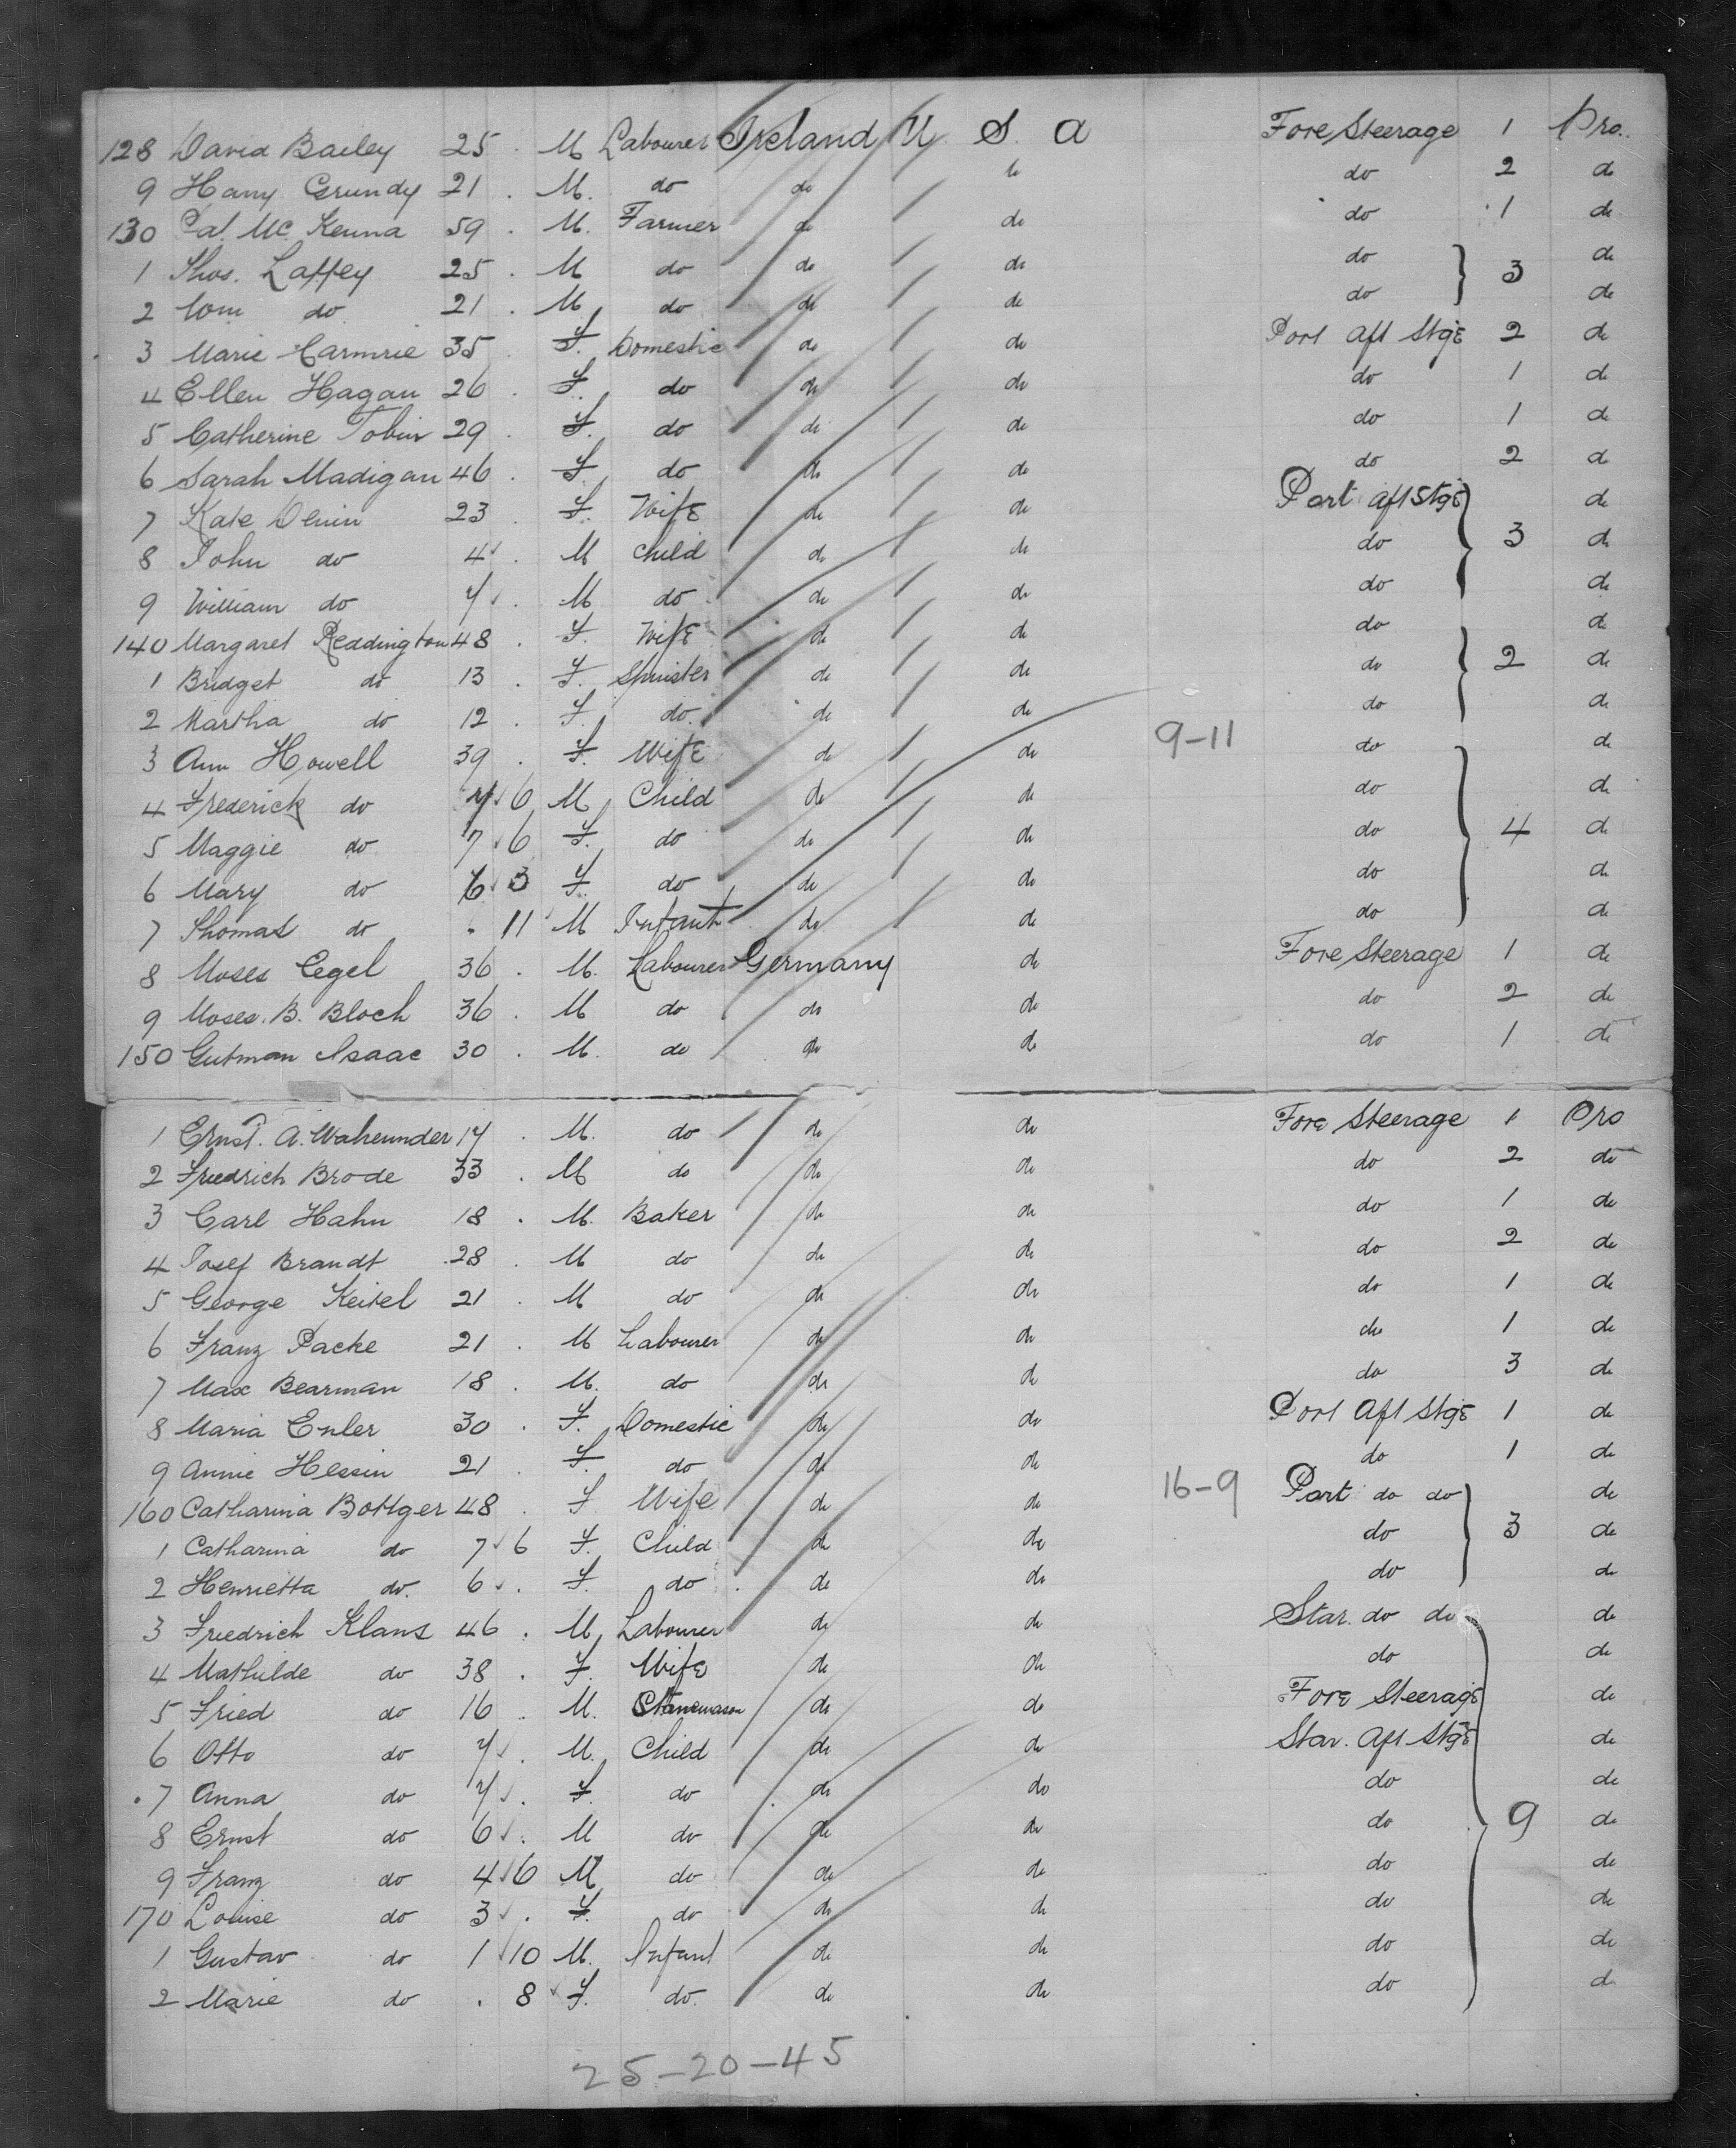 128 David Bailey 25 . M Labourer Ireland U. S. A Fore Steerage 1 Pro.
9 Harry Grundy 21 . M. do do do do 2 do
130 Pat. Mc. Kenna 59 . M. Farmer do do do 1 do
1 Thos. Laffey 25 . M do do do do 3 do
2 Wm do 21 . M do do do do do
3 Marie 35 F. Domestic do do Port Aft Stge 2 do
4 Ellen Hagan 26 . F. do do do do 1 do
5 Catherine Tobin 29 . F. do do do do 1 do
6 Sarah Madigan 46 . F do do do do 2 do
7 Kate 23 . F. Wife do do Port Aft Stge do
8 John do 4 . M Child do do do 3 do
9 William do 7 . M do do do do do
140 Margaret Reddington 48 . F. Wife do do do do
1 Bridget do 13 . F. Spinster do do do 2 do
2 Martha do 12 . F. do. do do do do
3 Ann Howell 39 . F. Wife do do 9-11 do do
4 Frederick do 7 6 M Child do do do do
5 Maggie do 7 6 F. do do do do 4 do
6 Mary do 6 3 F. do do do do do
7 Thomas do . 11 M Infant do do do do
8 Moses Cegel 36 . M. Labourer Germany do Fore Steerage 1 do
9 Moses. B. Bloch 36 . M do do do do 2 do
150 Gutman Isaac 30 . M. do do do do 1 do
1 Ernst. A. 17 . M. do do do Fore Steerage 1 Pro
2 Friedrich Brode 33 . M do do do do 2 do
3 Carl Hahn 18 . M. Baker do do do 1 do
4 Josef Brandt 28 . M do do do do 2 do
5 George Keitel 21 . M do do do do 1 do
6 Franz Packe 21 . M Labourer do do do 1 do
7 Max Bearman 18 . M. do do do do 3 do
8 Maria Euler 30 . F. Domestic do do Port Aft Stge 1 do
9 Annie Hessin 21 . F. do do do do 1 do
160 Catharina Bottger 48 . F Wife do do 16-9 Port do do do
1 Catharina do 7 6 F. Child do do do 3 do
2 Henrietta do. 6 . F. do . do do do do
3 Friedrich Klans 46 . M Labourer do do Star. do do do
4 Mathilde do 38 . F. Wife do do do do
5 Fried do 16 . M. Stonemason do do Fore Steerage do
6 Otto do 7 . M. Child do do Star. Aft Stge do
7 Anna do 7 . F. do do do do do
8 Ernst do 6 . M do do do do 9 do
9 Franz do 4 6 M do do do do do
170 Louise do 3 . F. do do do do do
1 Gustav do 1 10 M. Infant do do do do
2 Marie do . 8 F. do. do do do do
25-20-45